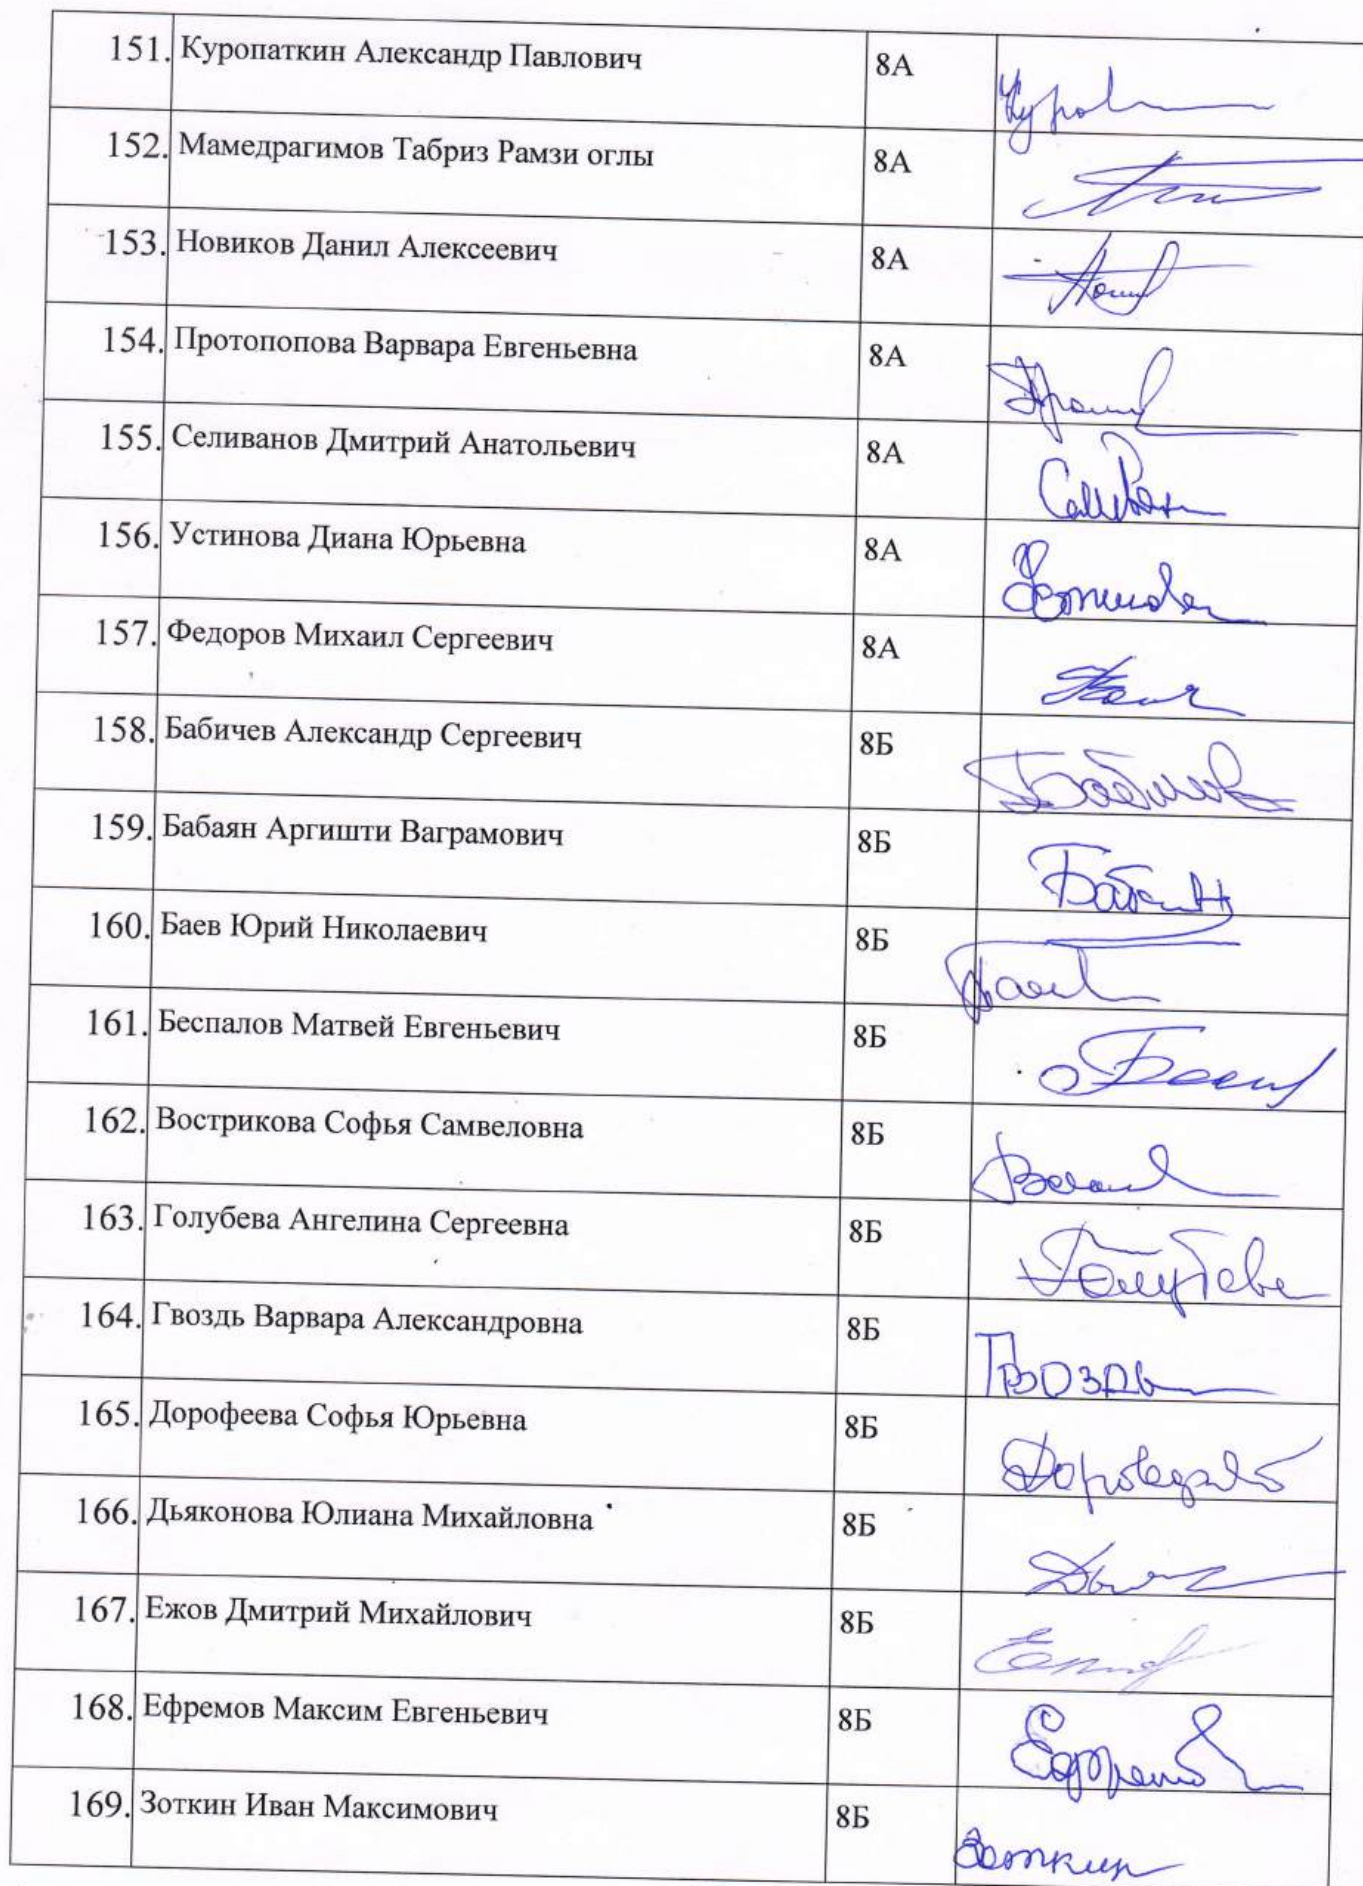 151. Куропаткин Александр Павлович 8А
152. Мамедрагимов Табриз Рамзи оглы 8А
153. Новиков Данил Алексеевич 8А
154. Протопопова Варвара Евгеньевна 8А
155. Селиванов Дмитрий Анатольевич 8А
156. Устинова Диана Юрьевна 8А
157. Федоров Михаил Сергеевич 8А
158. Бабичев Александр Сергеевич 8Б
159. Бабаян Аргишти Ваграмович 8Б
160. Баев Юрий Николаевич 8Б
161. Беспалов Матвей Евгеньевич 8Б
162. Вострикова Софья Самвеловна 8Б
163. Голубева Ангелина Сергеевна 8Б
164. Гвоздь Варвара Александровна 8Б Гвоздь
165. Дорофеева Софья Юрьевна 8Б
166. Дьяконова Юлиана Михайловна 8Б
167. Ежов Дмитрий Михайлович 8Б
168. Ефремов Максим Евгеньевич 8Б
169. Зоткин Иван Максимович 8Б Зоткин